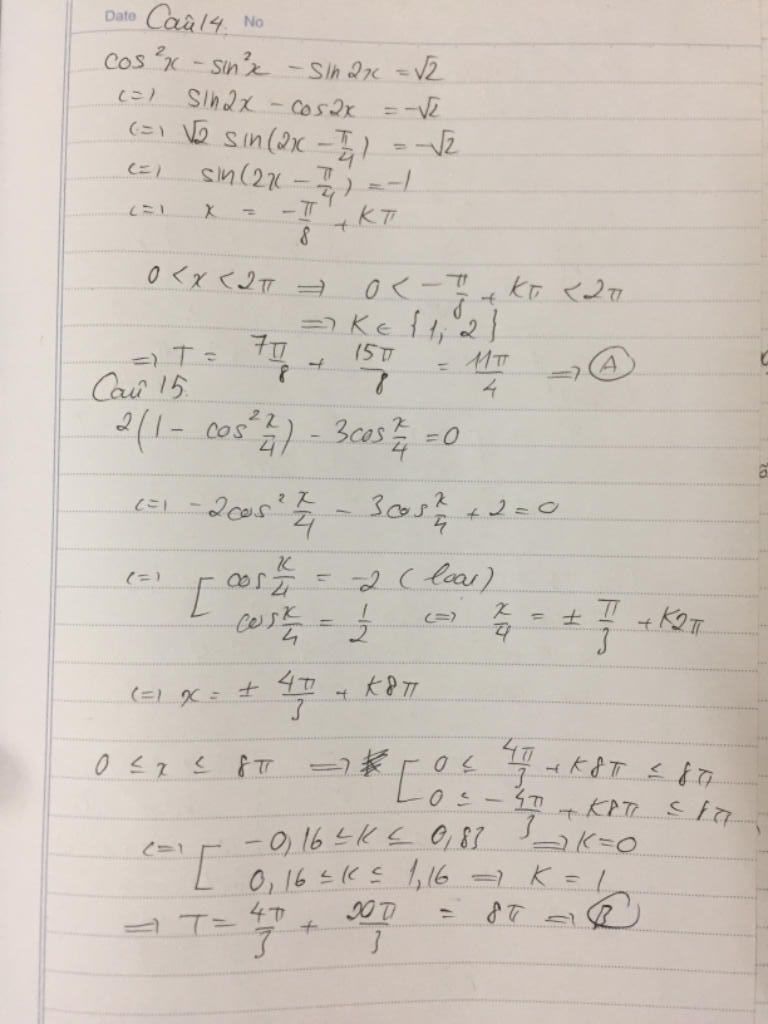 Date Câu 14. No
cos²x - sin²x - sin2x = √2
(=) sin2x - cos2x = -√2
(=) √2 sin(2x - π/4) = -√2
(=) sin(2x - π/4) = -1
(=) x = -π/8 + Kπ
0 < x < 2π => 0 < -π/8 + Kπ < 2π
=> K ∈ {1, 2}
=> T = 7π/8 + 15π/8 = 11π/4 => A
Câu 15.
2(1 - cos² x/4) - 3cos x/4 = 0
(=) -2cos² x/4 - 3cos x/4 + 2 = 0
(=) [ cos x/4 = -2 (loại)
cos x/4 = 1/2 (=> x/4 = ± π/3 + K2π
(=) x = ± 4π/3 + K8π
0 ≤ x ≤ 8π => [ 0 ≤ 4π/3 + K8π ≤ 8π
0 ≤ -4π/3 + K8π ≤ 8π
(=) [ -0,16 ≤ K ≤ 0,83 => K = 0
0,16 ≤ K ≤ 1,16 => K = 1
=> T = 4π/3 + 20π/3 = 8π => B